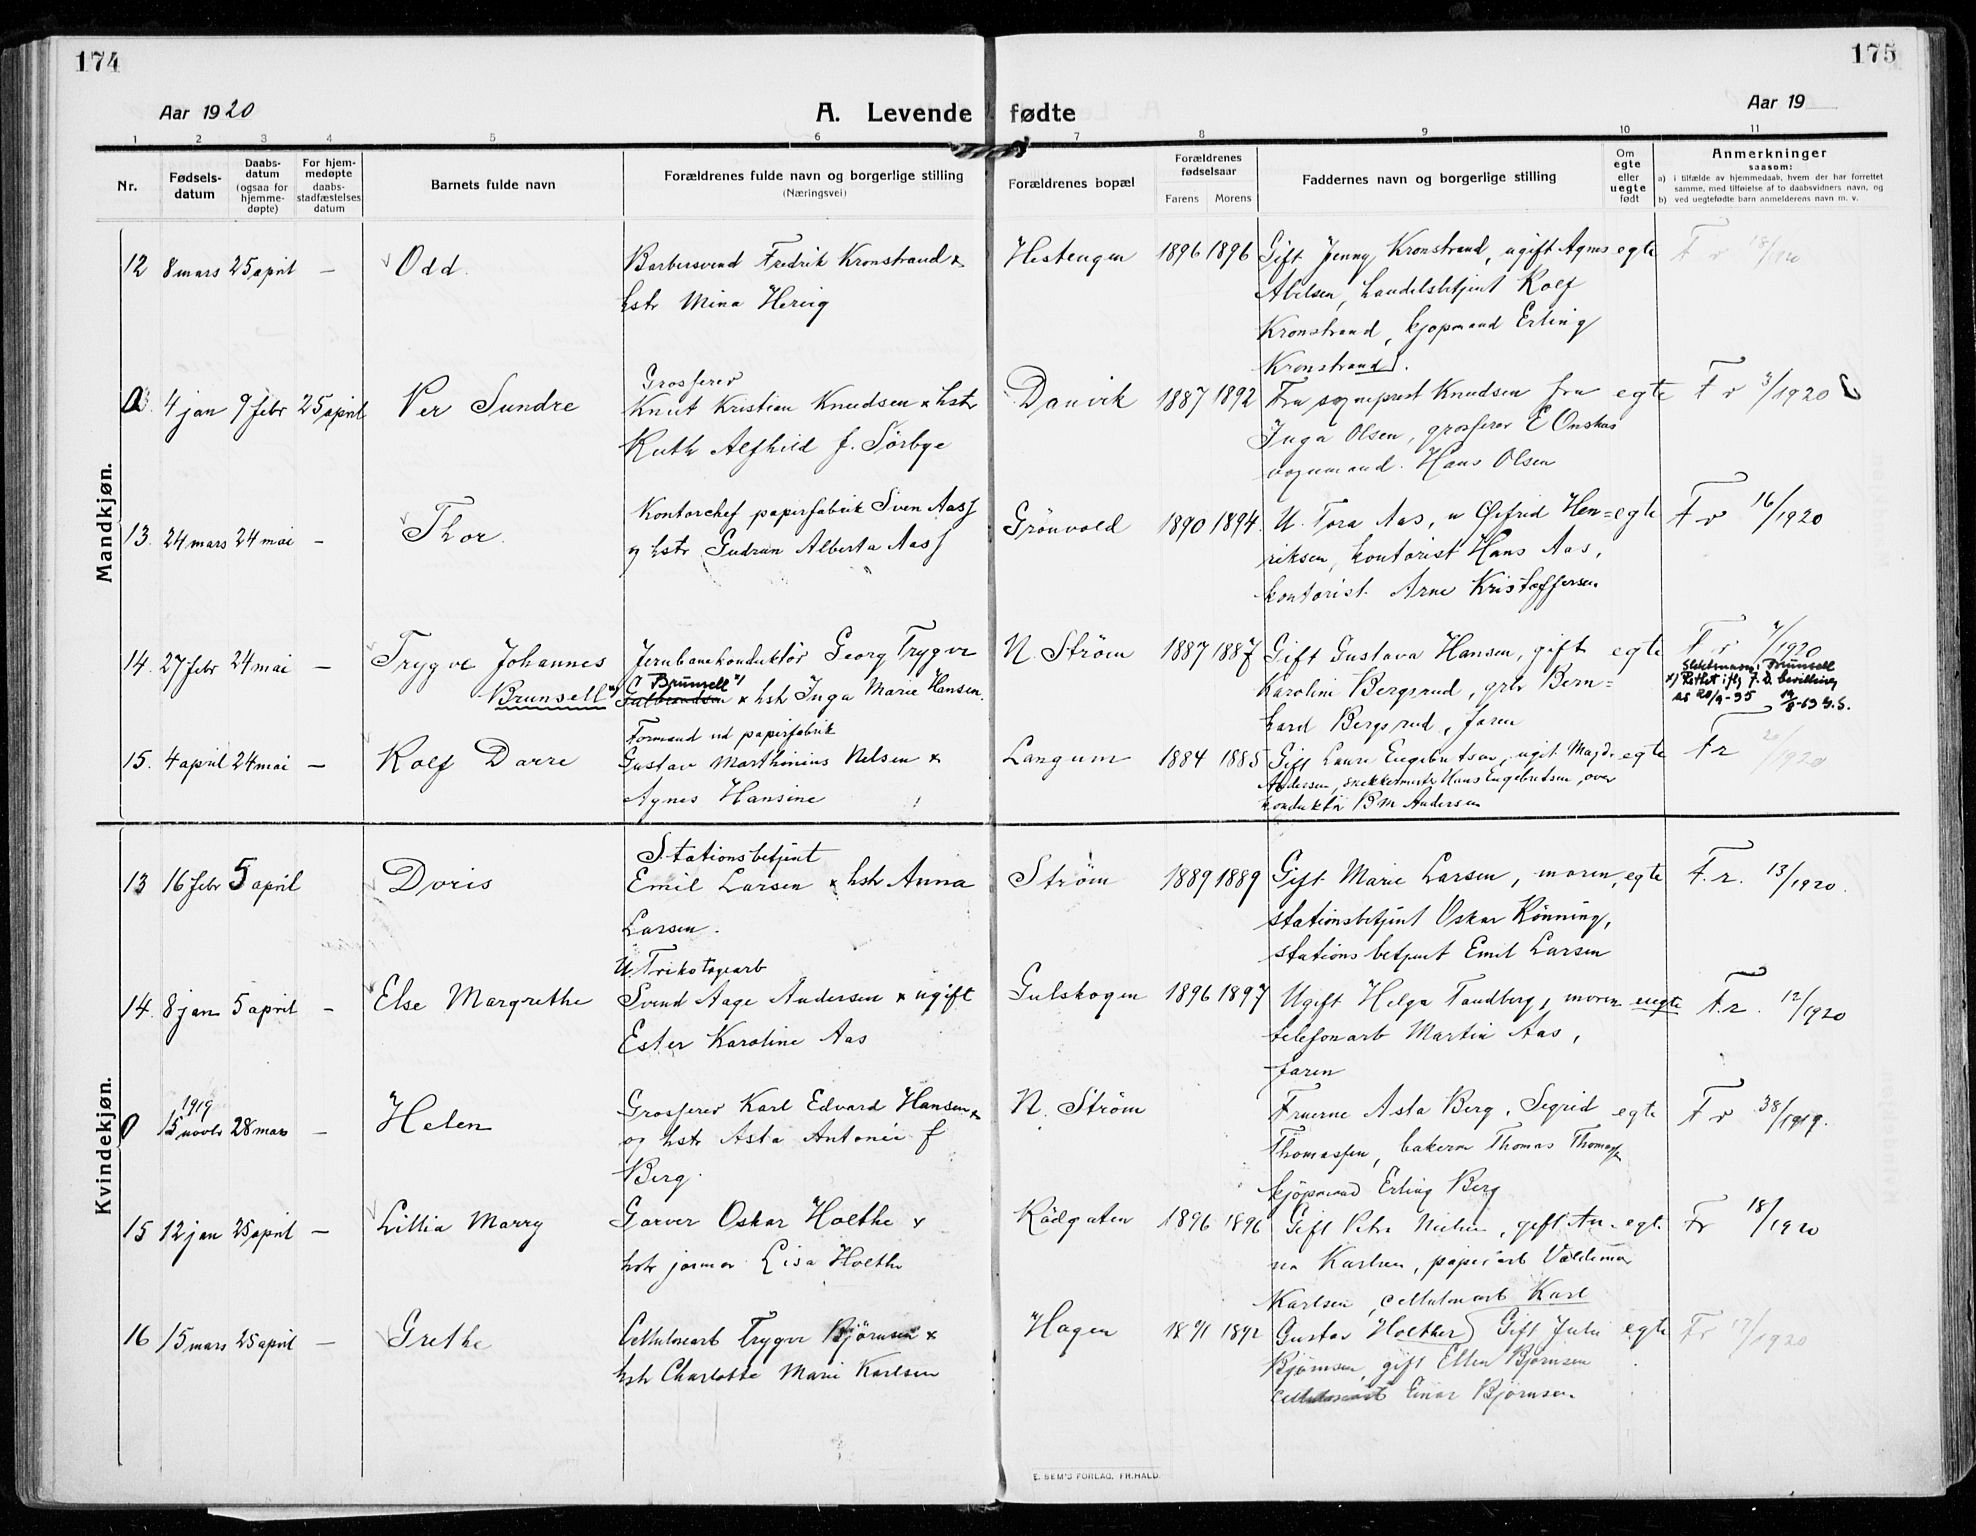 174
175
Aar 1920
A. Levende fødte
Aar 19
1 2 3 4 5 6 7 8 9 10 11
Nr.
Fødsels-
datum
Daabs-
datum
(ogsaa for
hjemme-
døpte)
For hjem-
medøpte
daabs-
stadfæstelses
datum
Barnets fulde navn
Forældrenes fulde navn og borgerlige stilling
(Næringsvei)
Forældrenes bopæl
Forældrenes
fødselsaar
Farens Morens
Faddernes navn og borgerlige stilling
Om
egte
eller
uegte
født
Anmerkninger
saasom:
a) i tilfælde av hjemmedaab, hvem der har forrettet
samme, med tilføielse af to daabsvidners navn, og
b) ved uegtefødte barn anmelderens navn m. v.
Mandkjøn.
12 8 mars 25 april – Odd. Barbersvend Fredrik Kronstrand x Hestengen 1896 1896 Gift Jenny Kronstrand, ugift Agnes egte F r 18/1920
hstr Mina Hervig Abelsen, handelsbetjent Rolf
Kronstrand, kjøpmand Erling
Kronstrand.
Grosserer
0. 4 jan 9 febr 25 april Per Sundre Knut Kristian Knudsen x hstr Danvik 1887 1892 Fru sogneprest Knudsen fru egte F r 3/1920
Ruth Alfhild f. Sörbye Inga Olsen, grosserer E Onshus
vognmand. Hans Olsen
13. 24 mars 24 mai – Thor. Kontorchef paperfabrik Sven Aass Grönvold 1890 1894. U. Tora Aas, u Øifrid Hen= egte F r 16/1920
og hstr Gudrun Alberta Aass riksen, kontorist Hans Aas,
kontorist Arne Kristoffersen
14. 27 febr 24 mai – Trygve Johannes Jernbanekonduktör Georg Trygve N. Ström 1887 1887 Gift Gustava Hansen, gift egte F r 7/1920
Brunsell x) Brunsell x) Gulbrandsen x hstr Inga Marie Hansen. Karoline Bergsrud, grbr Bern=
hard Bergsrud, faren
Slektsnavn: Brunsell
x) Rettet ifg J. D. bevilling
av 20/9-35 19/8-63 G.S.
Formand ved papirfabrik
15. 4 april 24 mai – Rolf Dorre Gustav Marthinius Nelsen x Langum 1884 1885 Gift Laura Engebretsen, ugift Magd. egte F r 20/1920
Agnes Hansine Andersen, snekkermestr Hans Engebretsen, over
konduktör B M Andersen
Kvindekjøn.
Stationsbetjent
13 16 febr 5 april Doris Emil Larsen x hstr Anna Ström 1889 1889 Gift Marie Larsen, moren, egte F. r. 13/1920.
Larsen. stationsbetjent Oskar Rönning,
stationsbetjent Emil Larsen
U. Trikotagearb
14. 8 jan 5 april – Else Margrethe Svend Aage Andersen x ugift Gulskogen 1896 1897 Ugift Helga Tandberg, moren uegte F. r. 12/1920
Ester Karoline Aas telefonarb Martin Aas,
faren
1919
0 15 novbr 28 mars – Helen Grosserer Karl Edvard Hansen x N. Ström Fruerne Asta Berg, Sigrid egte F r 38/1919.
og hstr Asta Antonie f Thomassen, bakerm Thomas Thomass.
Berg. kjöpmand Erling Berg
15 12 jan 25 april – Lillia Marry Garver Oskar Holthe x Rödgaten 1896 1896 Gift Petra Nielsen, gift An- egte Fr 18/1920
hstr jormor Lisa Holthe na Karlsen, papirarb Valdemar
Karlsen, cellulosearb Karl
16 15 mars 25 april – Grethe Cellulosearb Trygve Björnsen x Hagen 1891 1892 Gustav Holther) Gift Julie egte Fr 17/1920
hstr Charlotte Marie Karlsen Björnsen, gift Ellen Björnsen
cellulosearb Einar Björnsen.
E. SEM'S FORLAG, FR.HALD.